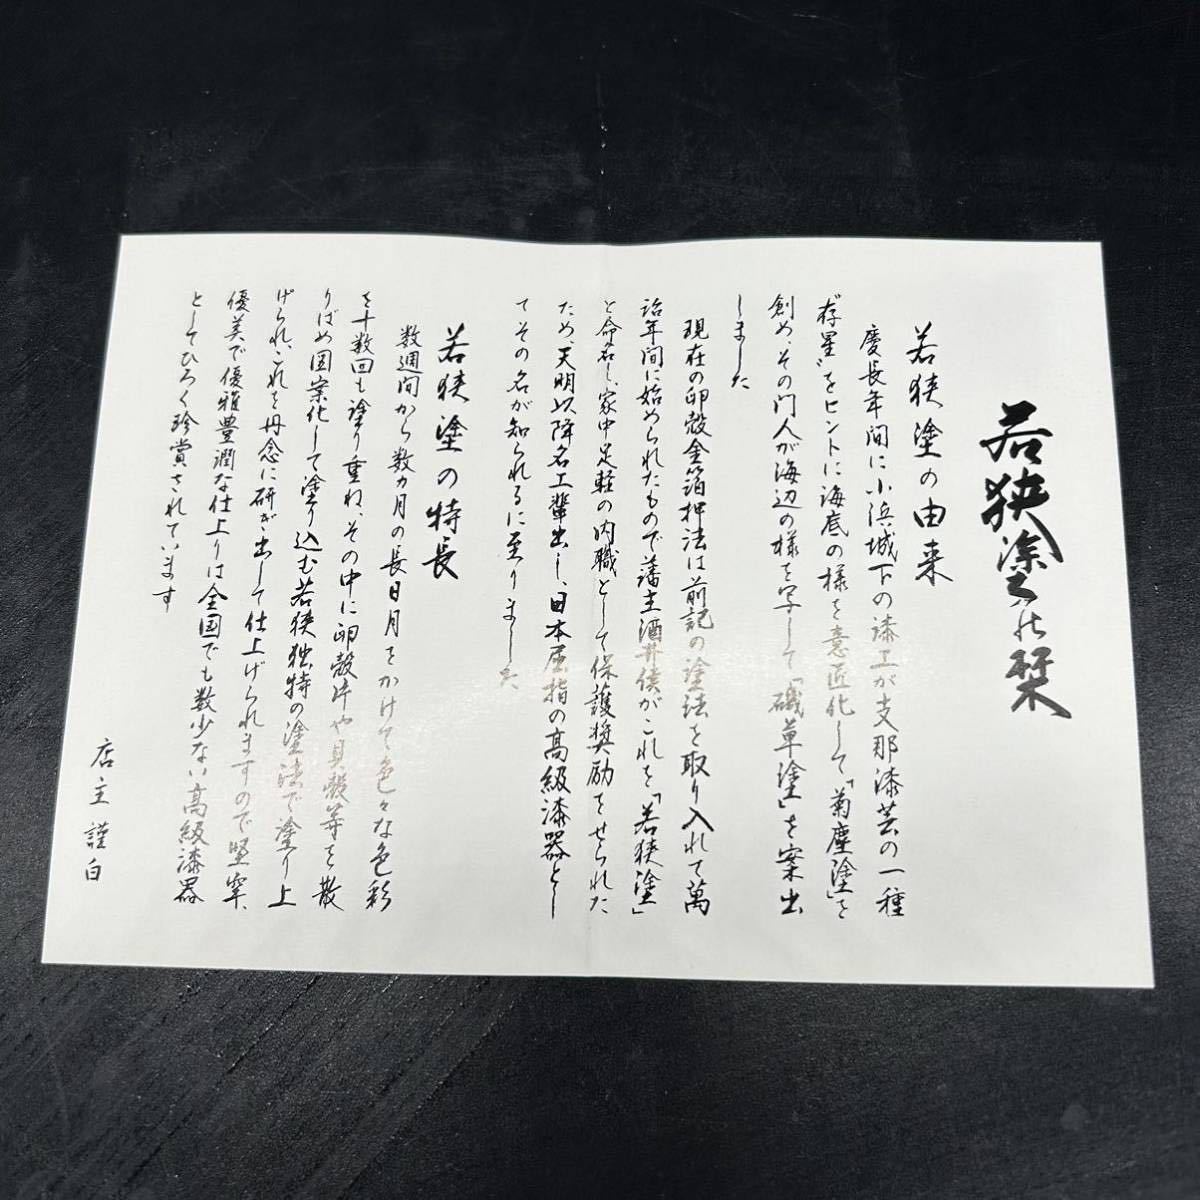 若狭塗の栞
若狭塗の由来
慶長年間に小浜城下の漆工が支那漆芸の一種
"存星"をヒントに海底の様を意匠化して「菊塵塗」を
創め、その門人が海辺の様を写して「磯草塗」を案出
しました
現在の卵殻金箔押法は前記の塗法を取り入れて萬
治年間に始められたもので藩主酒井侯がこれを「若狭塗」
と命名し、家中足軽の内職として保護奨励をせられた
ため、天明以降名工輩出し、日本屈指の高級漆器とし
てその名が知られるに至りました
若狭塗の特長
数週間から数ヵ月の長日月をかけて色々な色彩
を十数回も塗り重ね、その中に卵殻片や貝殻等を散
りばめ図案化して塗り込む若狭独特の塗法で塗り上
げられ、これを丹念に研ぎ出して仕上げられますので堅牢、
優美で優雅豊潤な仕上りは全国でも数少ない高級漆器
としてひろく珍賞されています
店主謹白